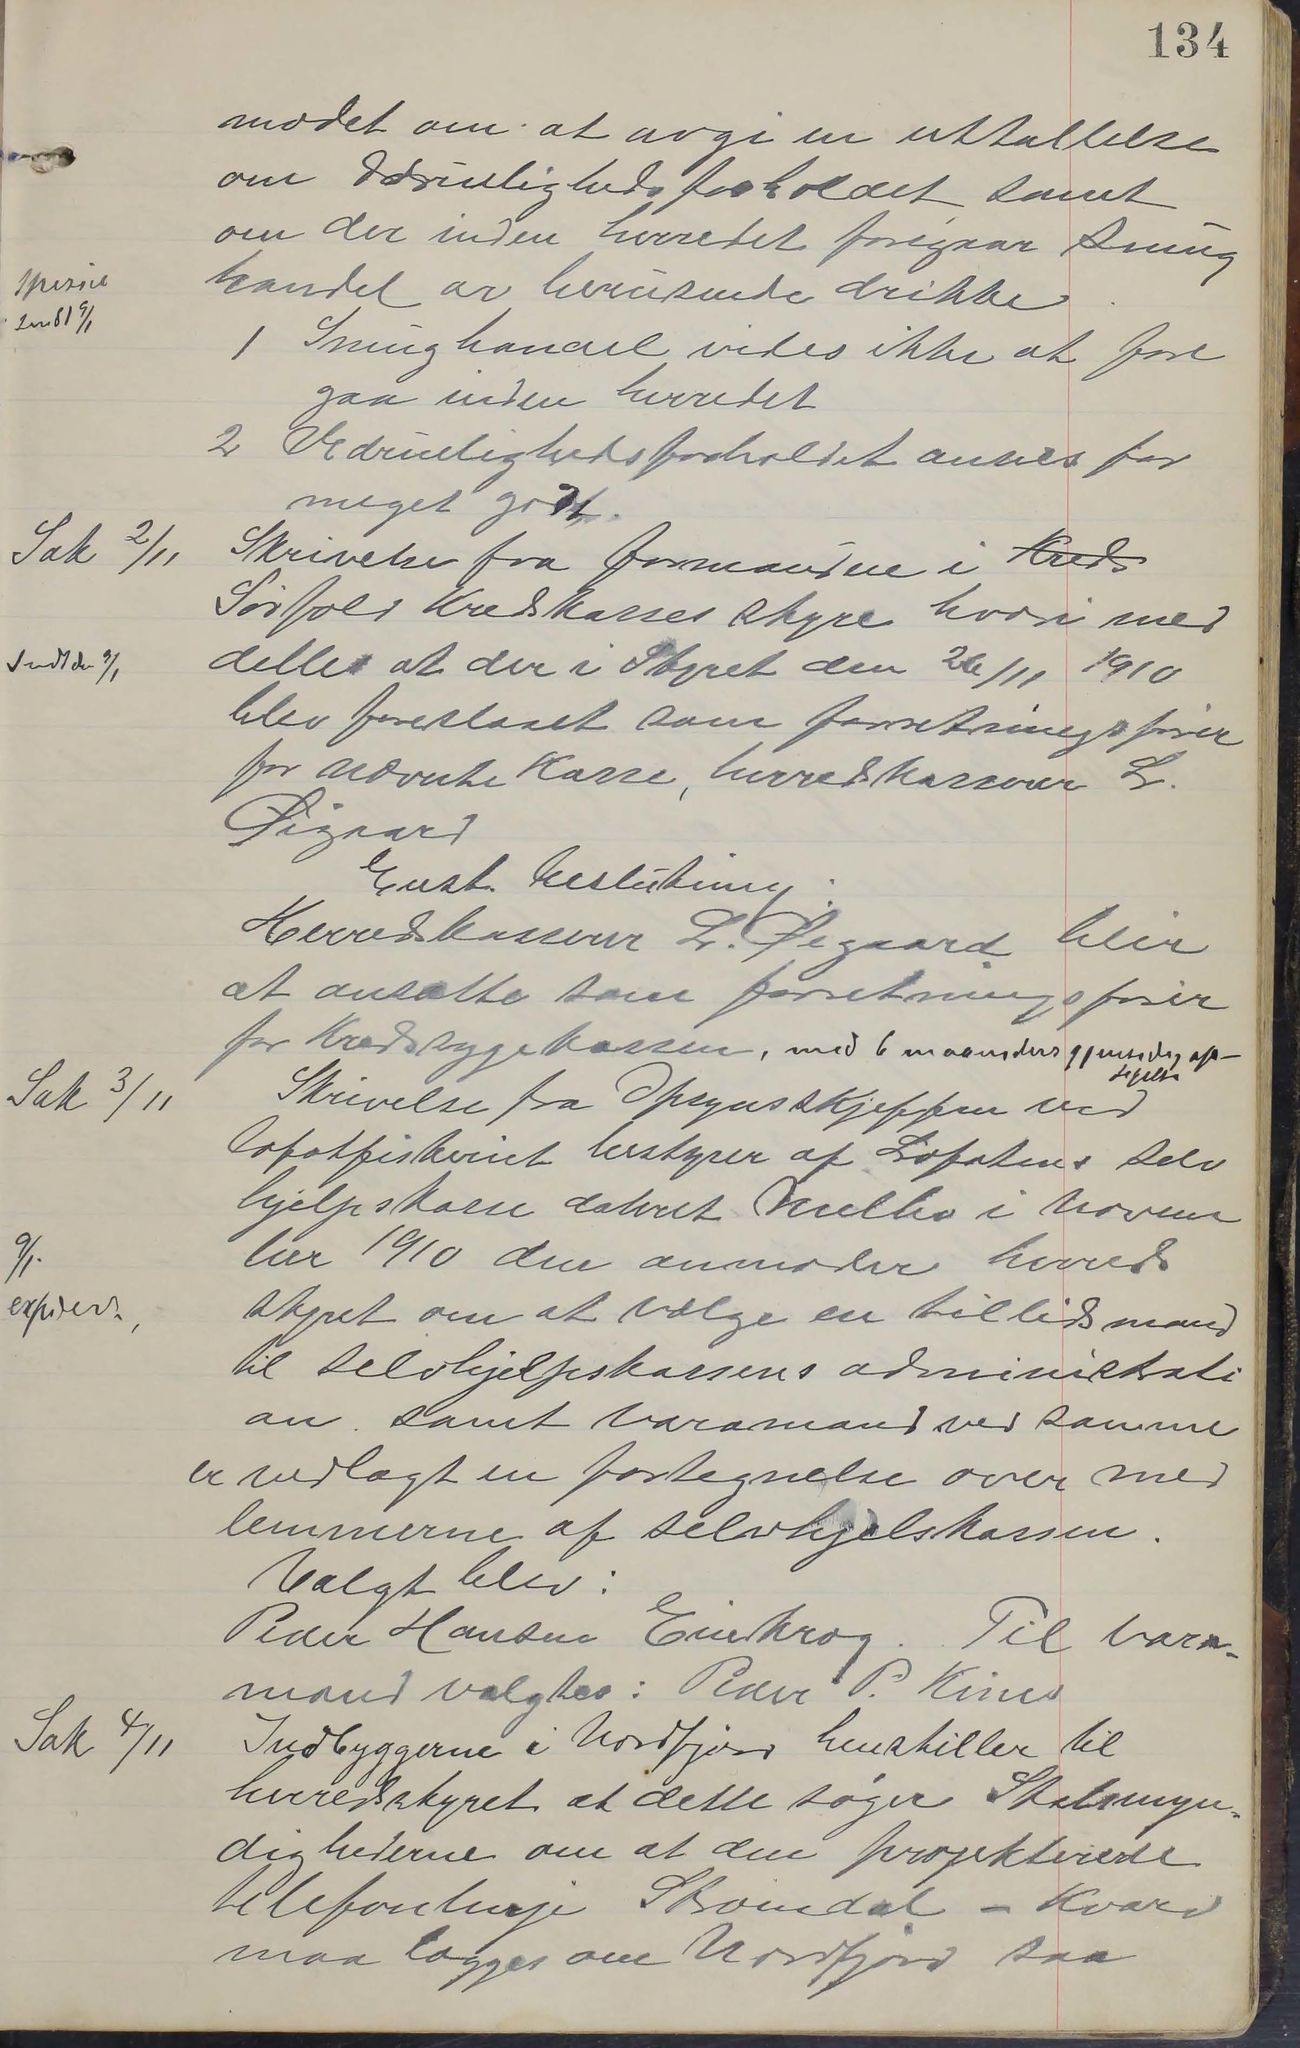 134
mødet om at avgi en uttallelse
om Ædruelighedsforholdet samt
om der inden herredet foregaar Smug
handel av berusende drikke.
1 Smughandel vides ikke at fore
gaa inden herredet
2 Ædruelighedsforholdet ansees for
meget godt.
Sak 2/11 Skrivelse fra formanden i Kreds
Sørfold Kredskasses styre hvori med
Sendt den 9/1
deller at der i Styret den 26/11 1910
blev foreslaaet som forretningsfører
for nævnte Kasse, herredskasserer L.
Øigaard
Enst. beslutning:
Herredskasserer L. Øegaard blir
at ansætte som forretningsfører
for Kredssygekassen, med 6 maaneders gjensidig op-
sigelse
Sak 3/11 Skrivelse fra Opsynskjeffen ved
Lofotfiskeriet bestyrer af Lofotens selv
hjelpskasse datert Melbo i Novem
ber 1910 der anmoder herreds
9/1.
expidert,
styret om at vælge en tillidsmand
til selvhjelpskassens administrati
on samt varamand ved samme
er vedlagt en fortegnelse over med
lemmerne af selvhjelskassen.
Valgt blev:
Peder Hansen Einkrog. Til vara-
mand valgtes: Peder P. Kines
Sak 4/11 Indbyggerne i Nordfjord henstiller til
herredstyret at dette søger Statsmyn-
dighederne om at den projekterede
telefonlinje Strømdal - Kvarv
maa lægges om Nordfjord saa